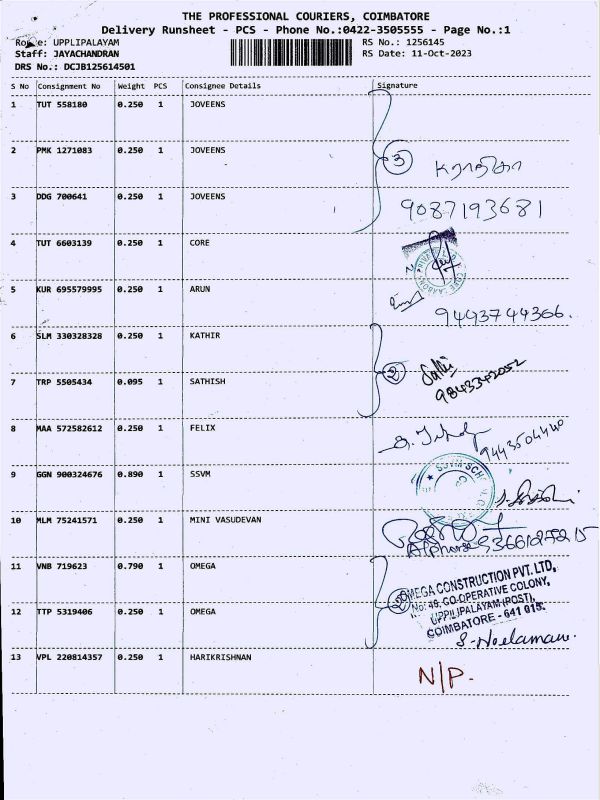 THE PROFESSIONAL COURIERS, COIMBATORE
Delivery Runsheet - PCS - Phone No.:0422-3505555 - Page No.:1
Route: UPPLIPALAYAM RS No.: 1256145
Staff: JAYACHANDRAN RS Date: 11-Oct-2023
DRS No.: DCJB125614501
S No Consignment No Weight PCS Consignee Details Signature
1 TUT 558180 0.250 1 JOVEENS
2 PMK 1271083 0.250 1 JOVEENS
3
3 DDG 700641 0.250 1 JOVEENS
9087193681
4 TUT 6603139 0.250 1 CORE
5 KUR 695579995 0.250 1 ARUN
9443744366.
6 SLM 330328328 0.250 1 KATHIR
2
7 TRP 5505434 0.095 1 SATHISH
9843342052
8 MAA 572582612 0.250 1 FELIX
9443504440
9 GGN 900324676 0.890 1 SSVM
SSVM SCH
10 MLM 75241571 0.250 1 MINI VASUDEVAN
11 VNB 719623 0.790 1 OMEGA
2
OMEGA CONSTRUCTION PVT. LTD,
No: 49, CO-OPERATIVE COLONY,
UPPILIPALAYAM (POST),
COIMBATORE - 641 015.
12 TTP 5319406 0.250 1 OMEGA
13 VPL 220814357 0.250 1 HARIKRISHNAN
N/P.